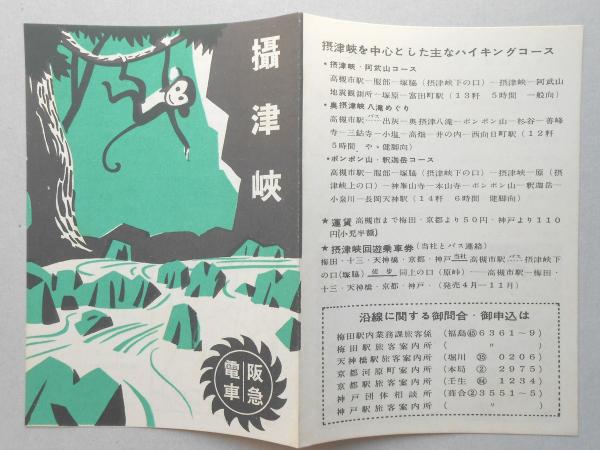 攝津峽
阪急
電車
摂津峡を中心とした主なハイキングコース
•摂津峡・阿武山コース
高槻市駅―服部―塚脇（摂津峡下の口）―摂津峡―阿武山
地震観測所―塚原―富田町駅（13粁 5時間 一般向）
•奥摂津峡八滝めぐり
高槻市駅バス出灰―奥摂津八滝―ポンポン山―杉谷―善峰
寺―三鈷寺―小塩―高畑―井の内―西向日町駅（12粁
5時間 やゝ健脚向）
•ポンポン山・釈迦岳コース
高槻市駅―服部―塚脇（摂津峡下の口）―摂津峡―原（摂
津峡上の口）―神峯山寺―本山寺―ポンポン山―釈迦岳―
小泉川―長岡天神駅（14粁 6時間 健脚向）
★運賃 高槻市まで梅田・京都より50円・神戸より110
円(小児半額)
★摂津峡回遊乗車券（当社とバス連絡）
梅田・十三・天神橋・京都・神戸当社高槻市駅バス摂津峡下
の口(塚脇)徒歩同上の口（原峠）――高槻市駅―梅田・
十三・天神橋・京都・神戸・（発売4月―11月）
沿線に関する御問合・御申込は
梅田駅内業務課旅客係（福島㊺6361～9）
梅田駅旅客案内所（ 〃 ）
天神橋駅旅客案内所（堀川㉟0206）
京都河原町案内所（本局②2975）
京都駅旅客案内所（壬生84 1234）
神戸団体相談所（葺合②3551～5）
神戸駅旅客案内所（ 〃 ）